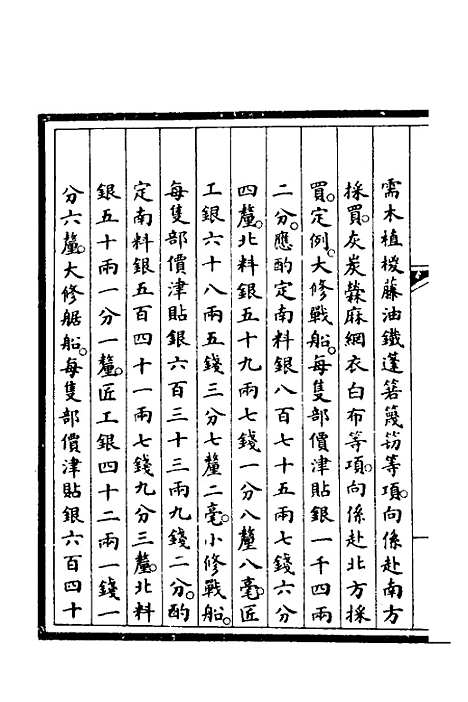 需木植椶藤油鐵蓬箬篾笏等項。向係赴南方
採買。灰炭檾麻網衣白布等項。向係赴北方採
買。定例。大修戰船。每隻部價津貼銀一千四兩
二分。應酌定南料銀八百七十五兩七錢六分
四釐。北料銀五十九兩七錢一分八釐八毫。匠
工銀六十八兩五錢三分七釐二毫。小修戰船。
每隻部價津貼銀六百三十三兩九錢二分。酌
定南料銀五百四十一兩七錢九分三釐。北料
銀五十兩一分一釐。匠工銀四十二兩一錢一
分六釐。大修艍船。每隻部價津貼銀六百四十